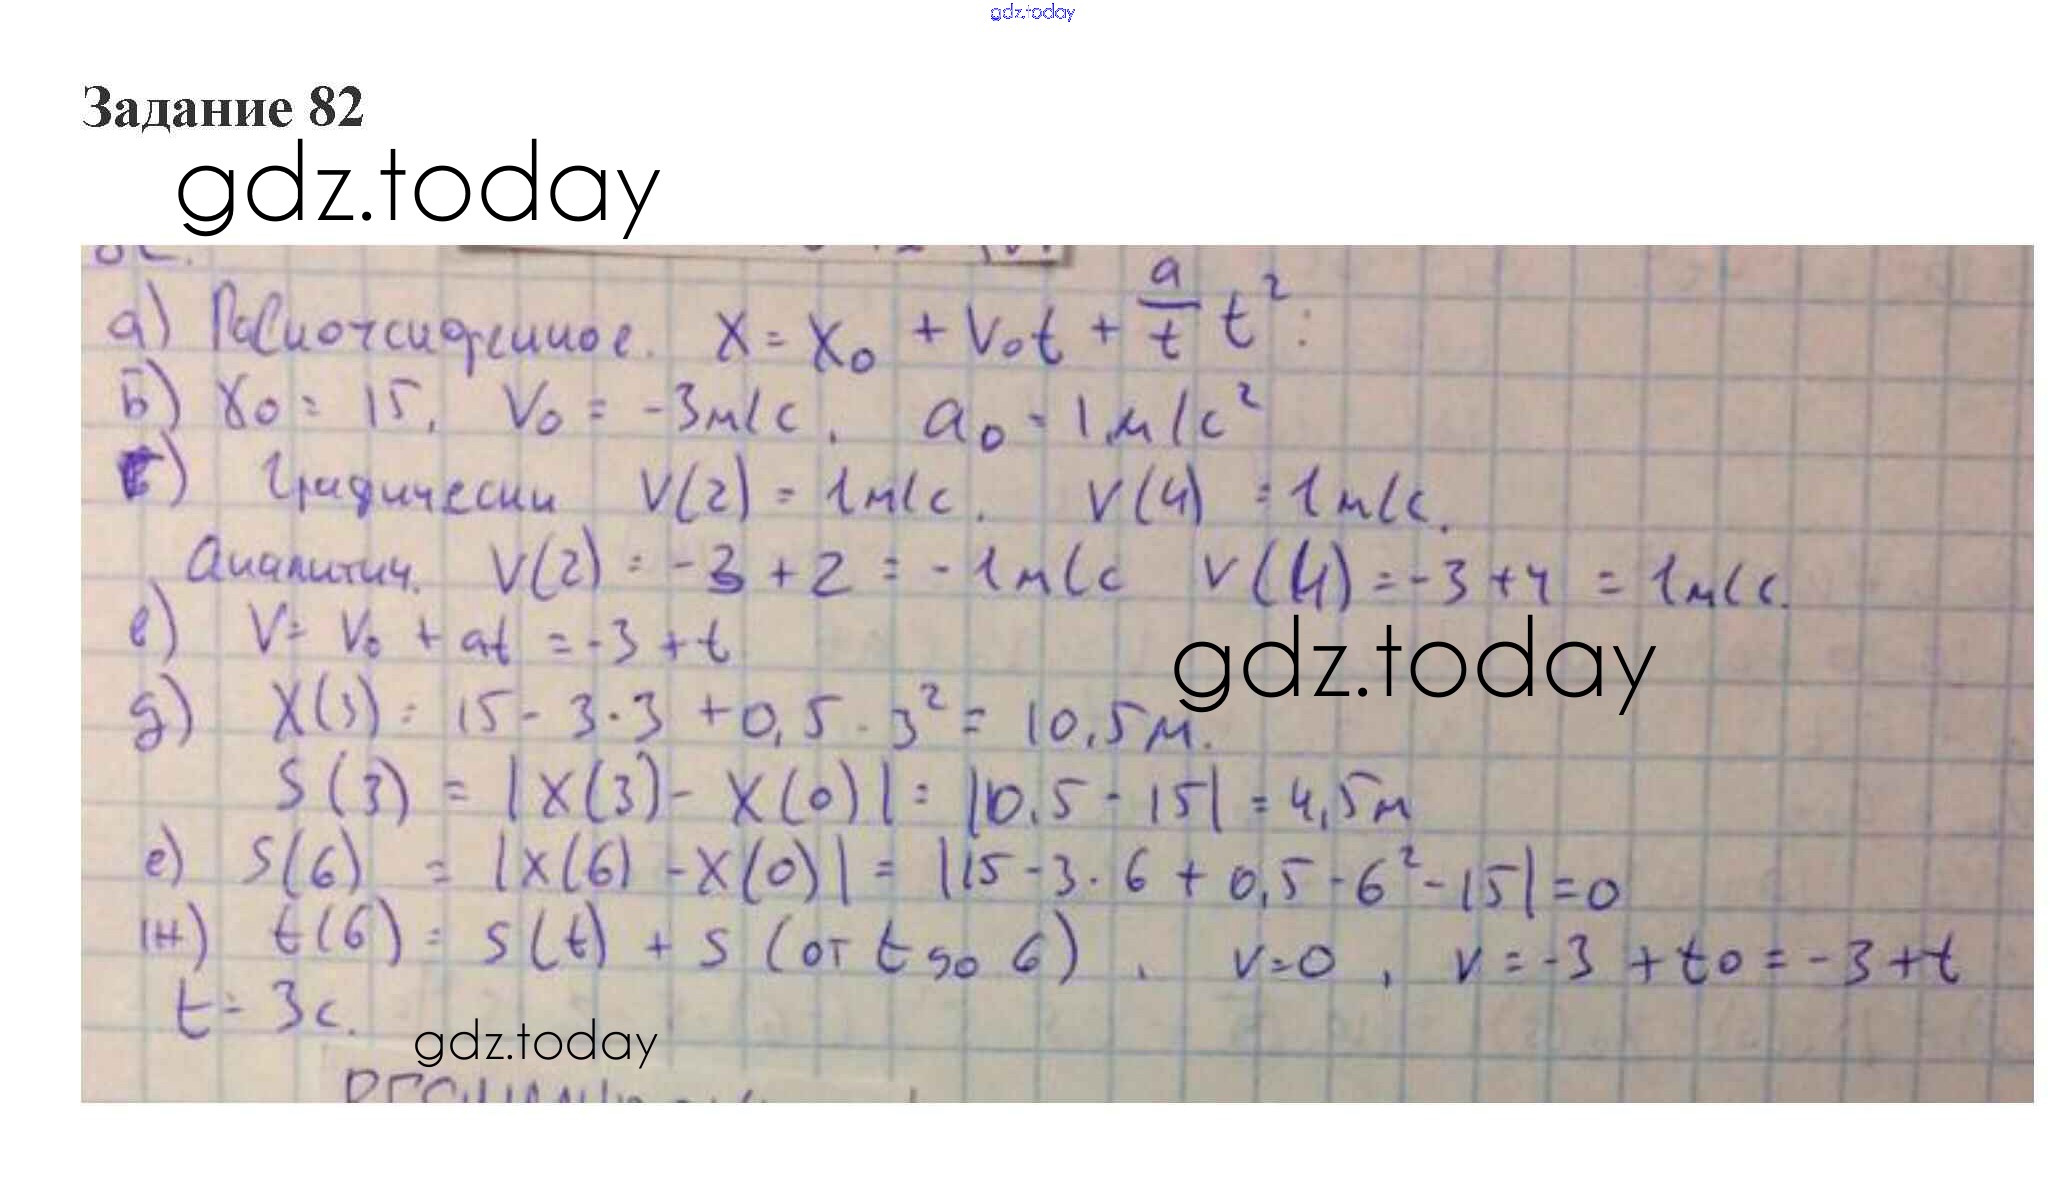 gdz.today
Задание 82
gdz.today
82.
а) Равноускоренное. x = x₀ + v₀t + a/t t²:
Б) x₀ = 15, v₀ = -3м/с, a₀ = 1м/с²
Графически v(2) = 1м/с. v(4) = 1м/с.
Аналитич. v(2) = -3 + 2 = -1м/с v(4) = -3 + 4 = 1м/с.
в) v = v₀ + at = -3 + t
gdz.today
д) x(3) = 15 - 3·3 + 0,5·3² = 10,5м.
S(3) = |x(3) - x(0)| = |10,5 - 15| = 4,5м
е) S(6) = |x(6) - x(0)| = |15 - 3·6 + 0,5·6² - 15| = 0
н) t(6) = S(t) + S (от t до 6), v=0, v = -3 + t0 = -3 + t
t = 3с.
gdz.today